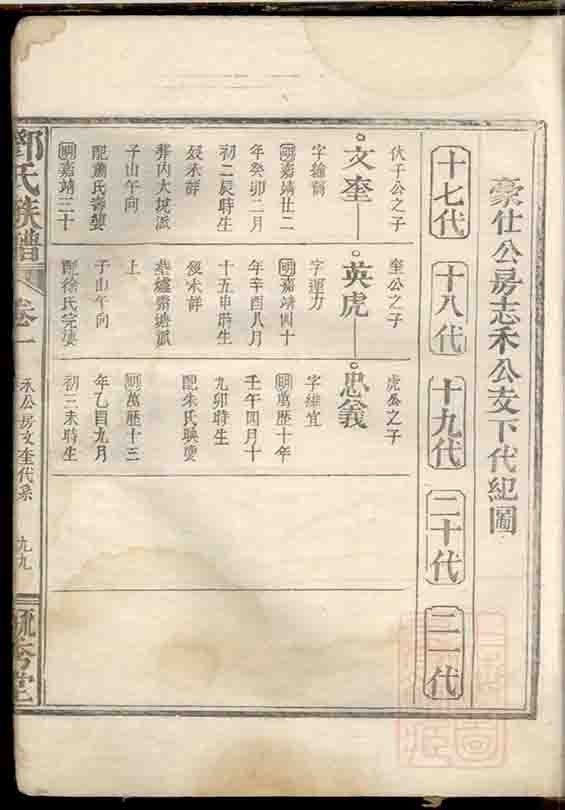 豪仕公房志禾公支下代紀圖
十七代
十八代
十九代
二十代
二一代
伏于公之子
文奎
字
明嘉靖廿二
年癸卯二月
初二辰時生
歿未詳
葬內大坑派
子山午向
配蕭氏壽嬰
明嘉靖三十
奎公之子
英虎
字運力
明嘉靖四十
年辛酉八月
十五申時生
歿未詳
葬爐齋塘派
上
子山午向
配徐氏完嬰
虎公之子
忠義
字維宜
明萬歷十年
壬午四月十
九卯時生
配朱氏暎雯
明萬歷十三
年乙酉九月
初三未時生
鄧氏族譜
卷一
禾公房文奎代系
九九
毓秀堂